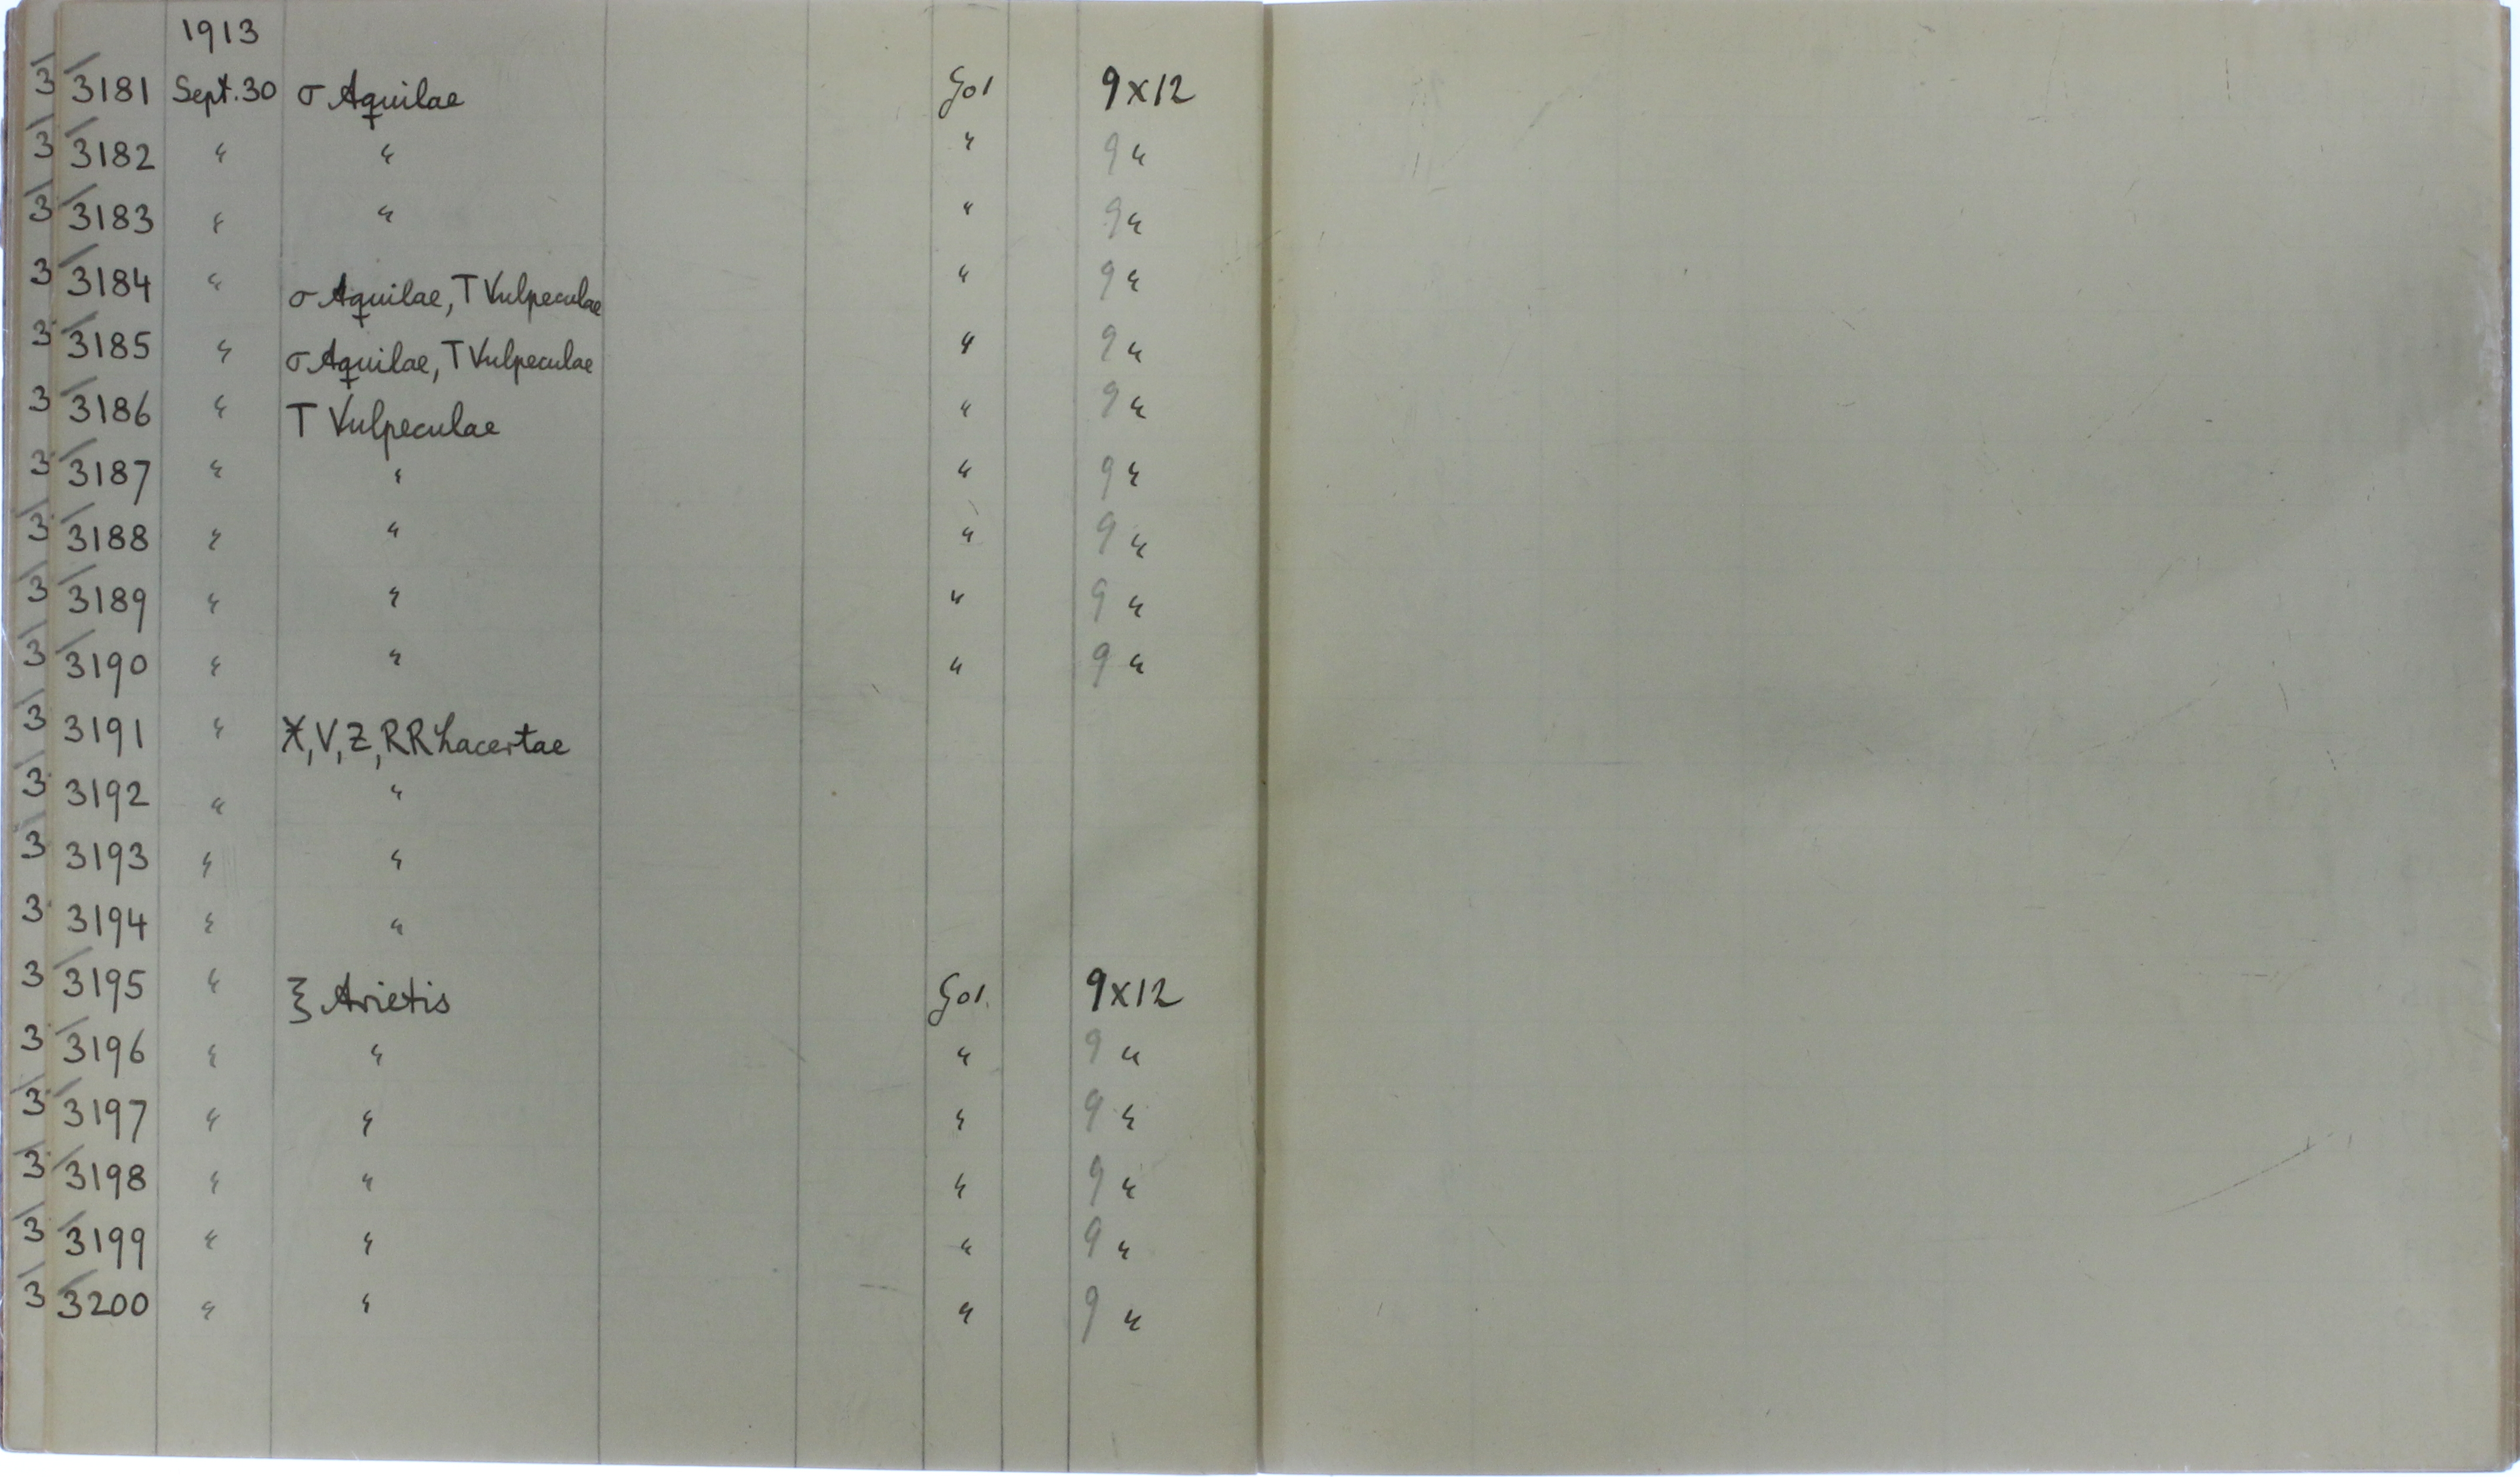 1913
3181 Sept. 30 σ Aquilae 9 x 12
3182 " " " 9 "
3183 " " " 9 "
3184 " σ Aquilae, T Vulpeculae " 9 "
3185 " σ Aquilae, T Vulpeculae " 9 "
3186 " T Vulpeculae " 9 "
3187 " " " 9 "
3188 " " " 9 "
3189 " " " 9 "
3190 " " " 9 "
3191 " X, V, Z, RR Lacertae
3192 " "
3193 " "
3194 " "
3195 " ξ Arietis 9 x 12
3196 " " " 9 "
3197 " " " 9 "
3198 " " " 9 "
3199 " " " 9 "
3200 " " " 9 "